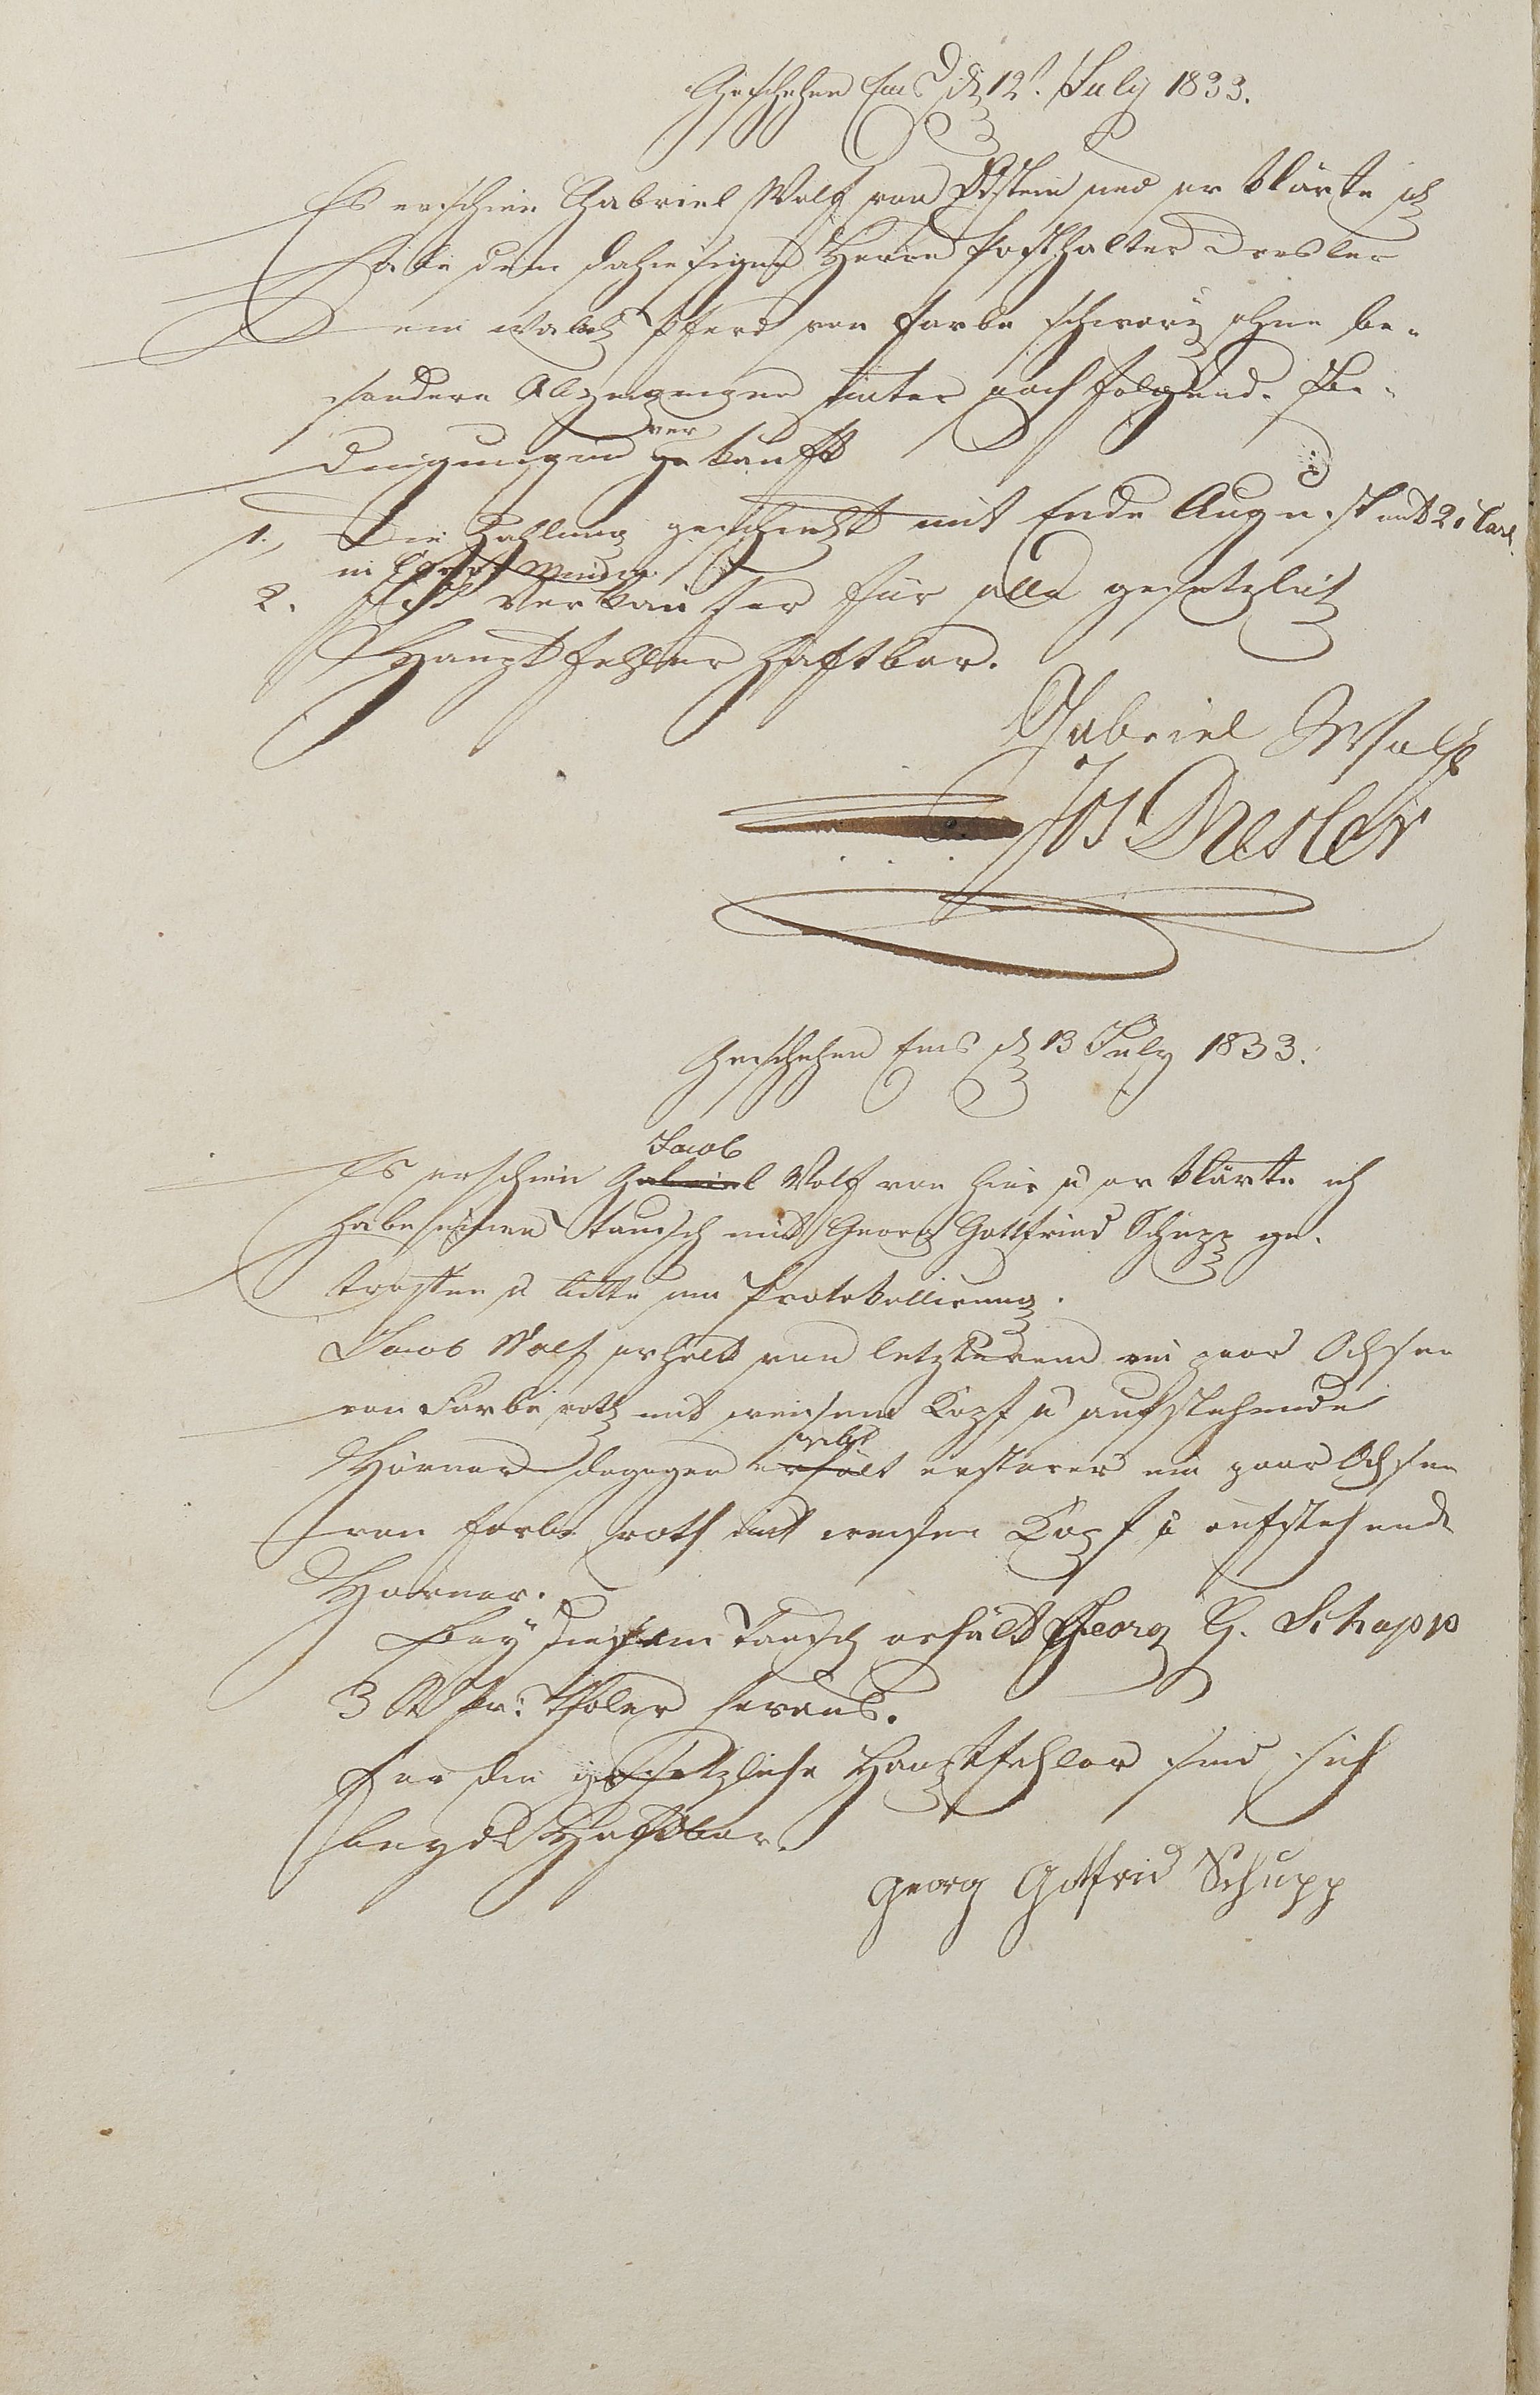 Geschehen Ems d 12t. July 1833.
Es erschien Gabriel Wolf von Idstein und erklärte ich
habe dem dahiesigen Herrn Posthalter Dresler
ein Wallach Pferd von Farbe schwarz ohne be-
sondere Abzeigungen unter nachfolgend. Be-
dingungen verkauft
1., Die Zahlung geschieht mit Ende August mit 20 Carl.
in
2. Ist Verkäufer für alle gesetzlich
Hauptfehler haftbar.
Gabriel Wolf
Js Dresler
Geschehen Ems d 13 July 1833.
Jacob
Es erschien Gabriel Wolf von hier u erklärte ich
habe einen Tausch mit Georg Gottfried Schupp ge-
troffen u bitte um Protokollirung.
Jacob Wolf erhält von letzterem ein paar Ochsen
von Farbe roth mit weisem Kopf u aufstehende
gibt
Hörner dagegen erhält ersterer ein paar Ochsen
von Farbe roth mit weisem Kopf u aufstehende
Hörner.
Bey diesem Tausch erhält Georg G. Schupp
3 St Pr: Thaler heraus.
Für die gesetzliche Hauptfehler sind sich
beyde Haftbar.
Georg Gotfrid Schupp